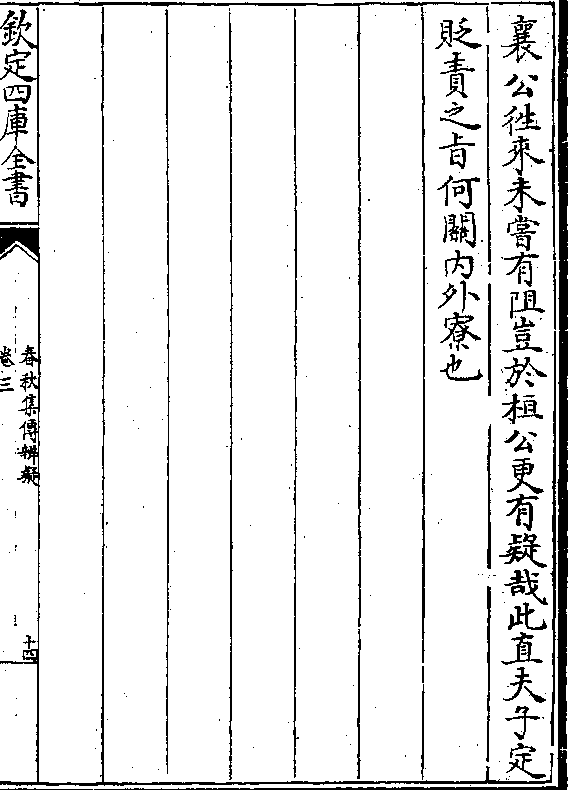 襄公徃來未嘗有阻豈於桓公更有疑哉此直夫子定
貶責之㫖何關内外寮也
欽定四庫全書
春秋集傳辨疑
卷三
十四